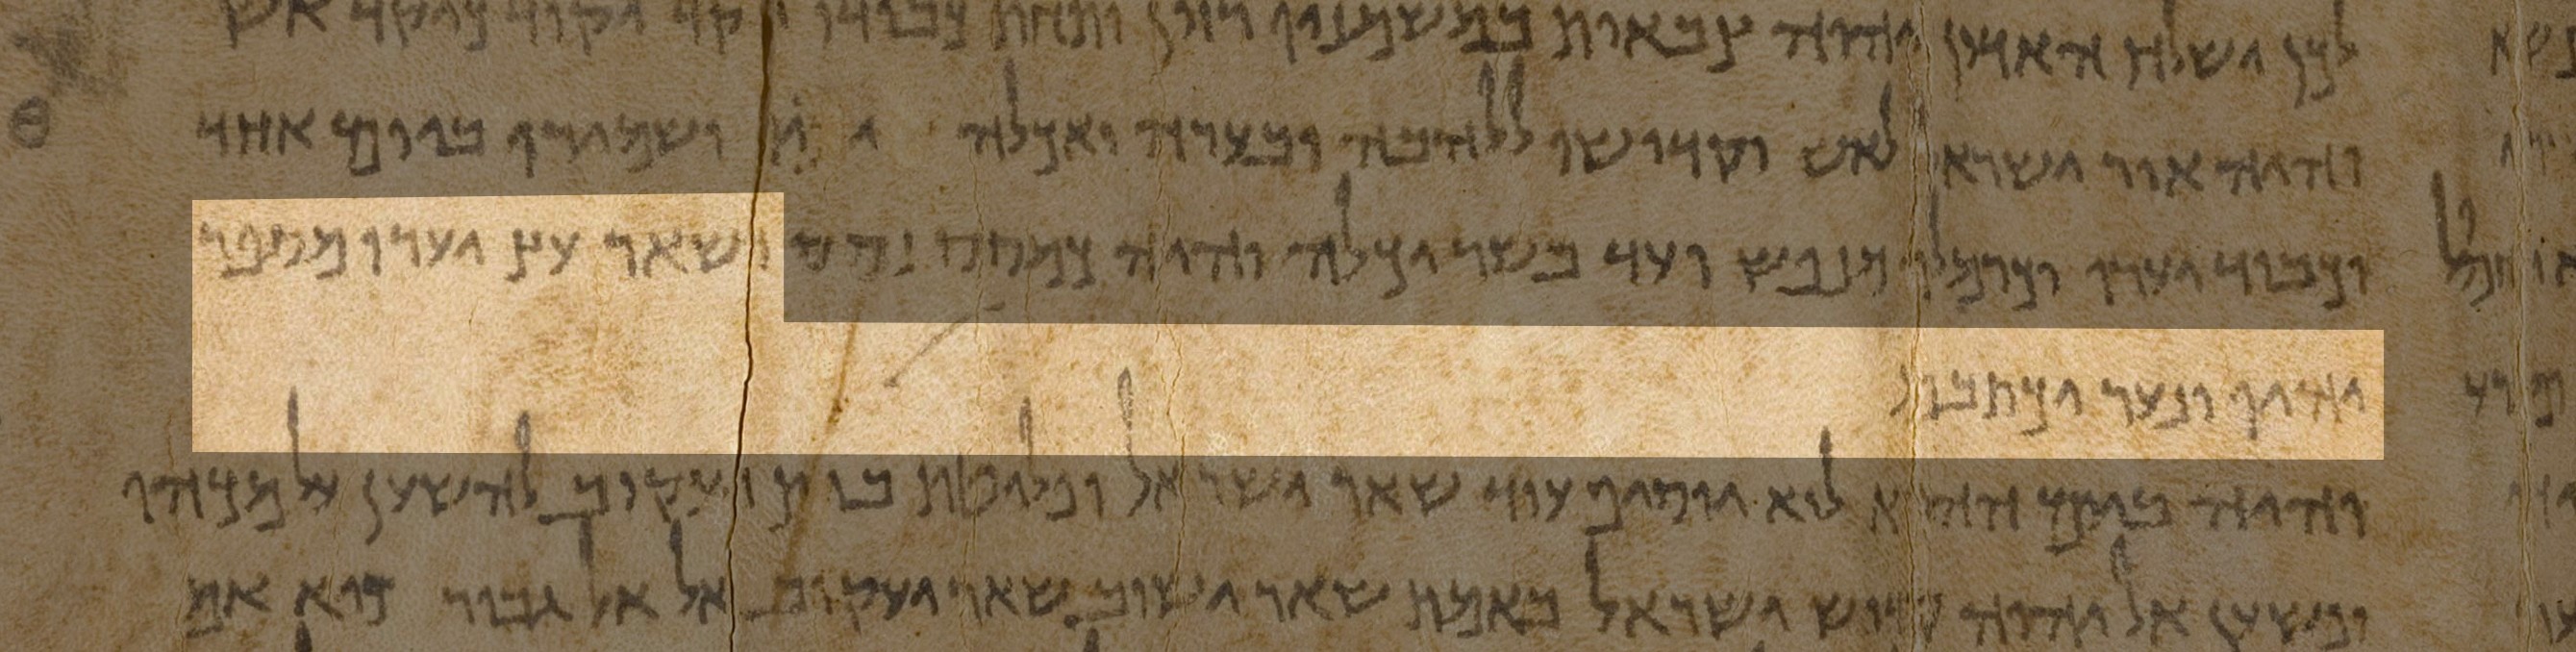 לכן ישלח האדון יהוה צבאות במשמניו רזון ותחת כבודו יקד יקוד כיקד אש
והיה אור ישראל לאש וקדושו ללהבה ובערה ואכלה ושמירו ביום אחד
וכבוד יערו וכרמלו מנפש ועד בשר יכלה והיה כמסס נסס ושאר עץ יערו מספר
יהיו ונער יכתבם
והיה ביום ההוא לוא יוסיף עוד שאר ישראל ופליטת בית יעקוב להשען על מכהו
ונשען אל יהוה קדוש ישראל באמת שאר ישוב שאר יעקוב אל אל גבור כיא אם